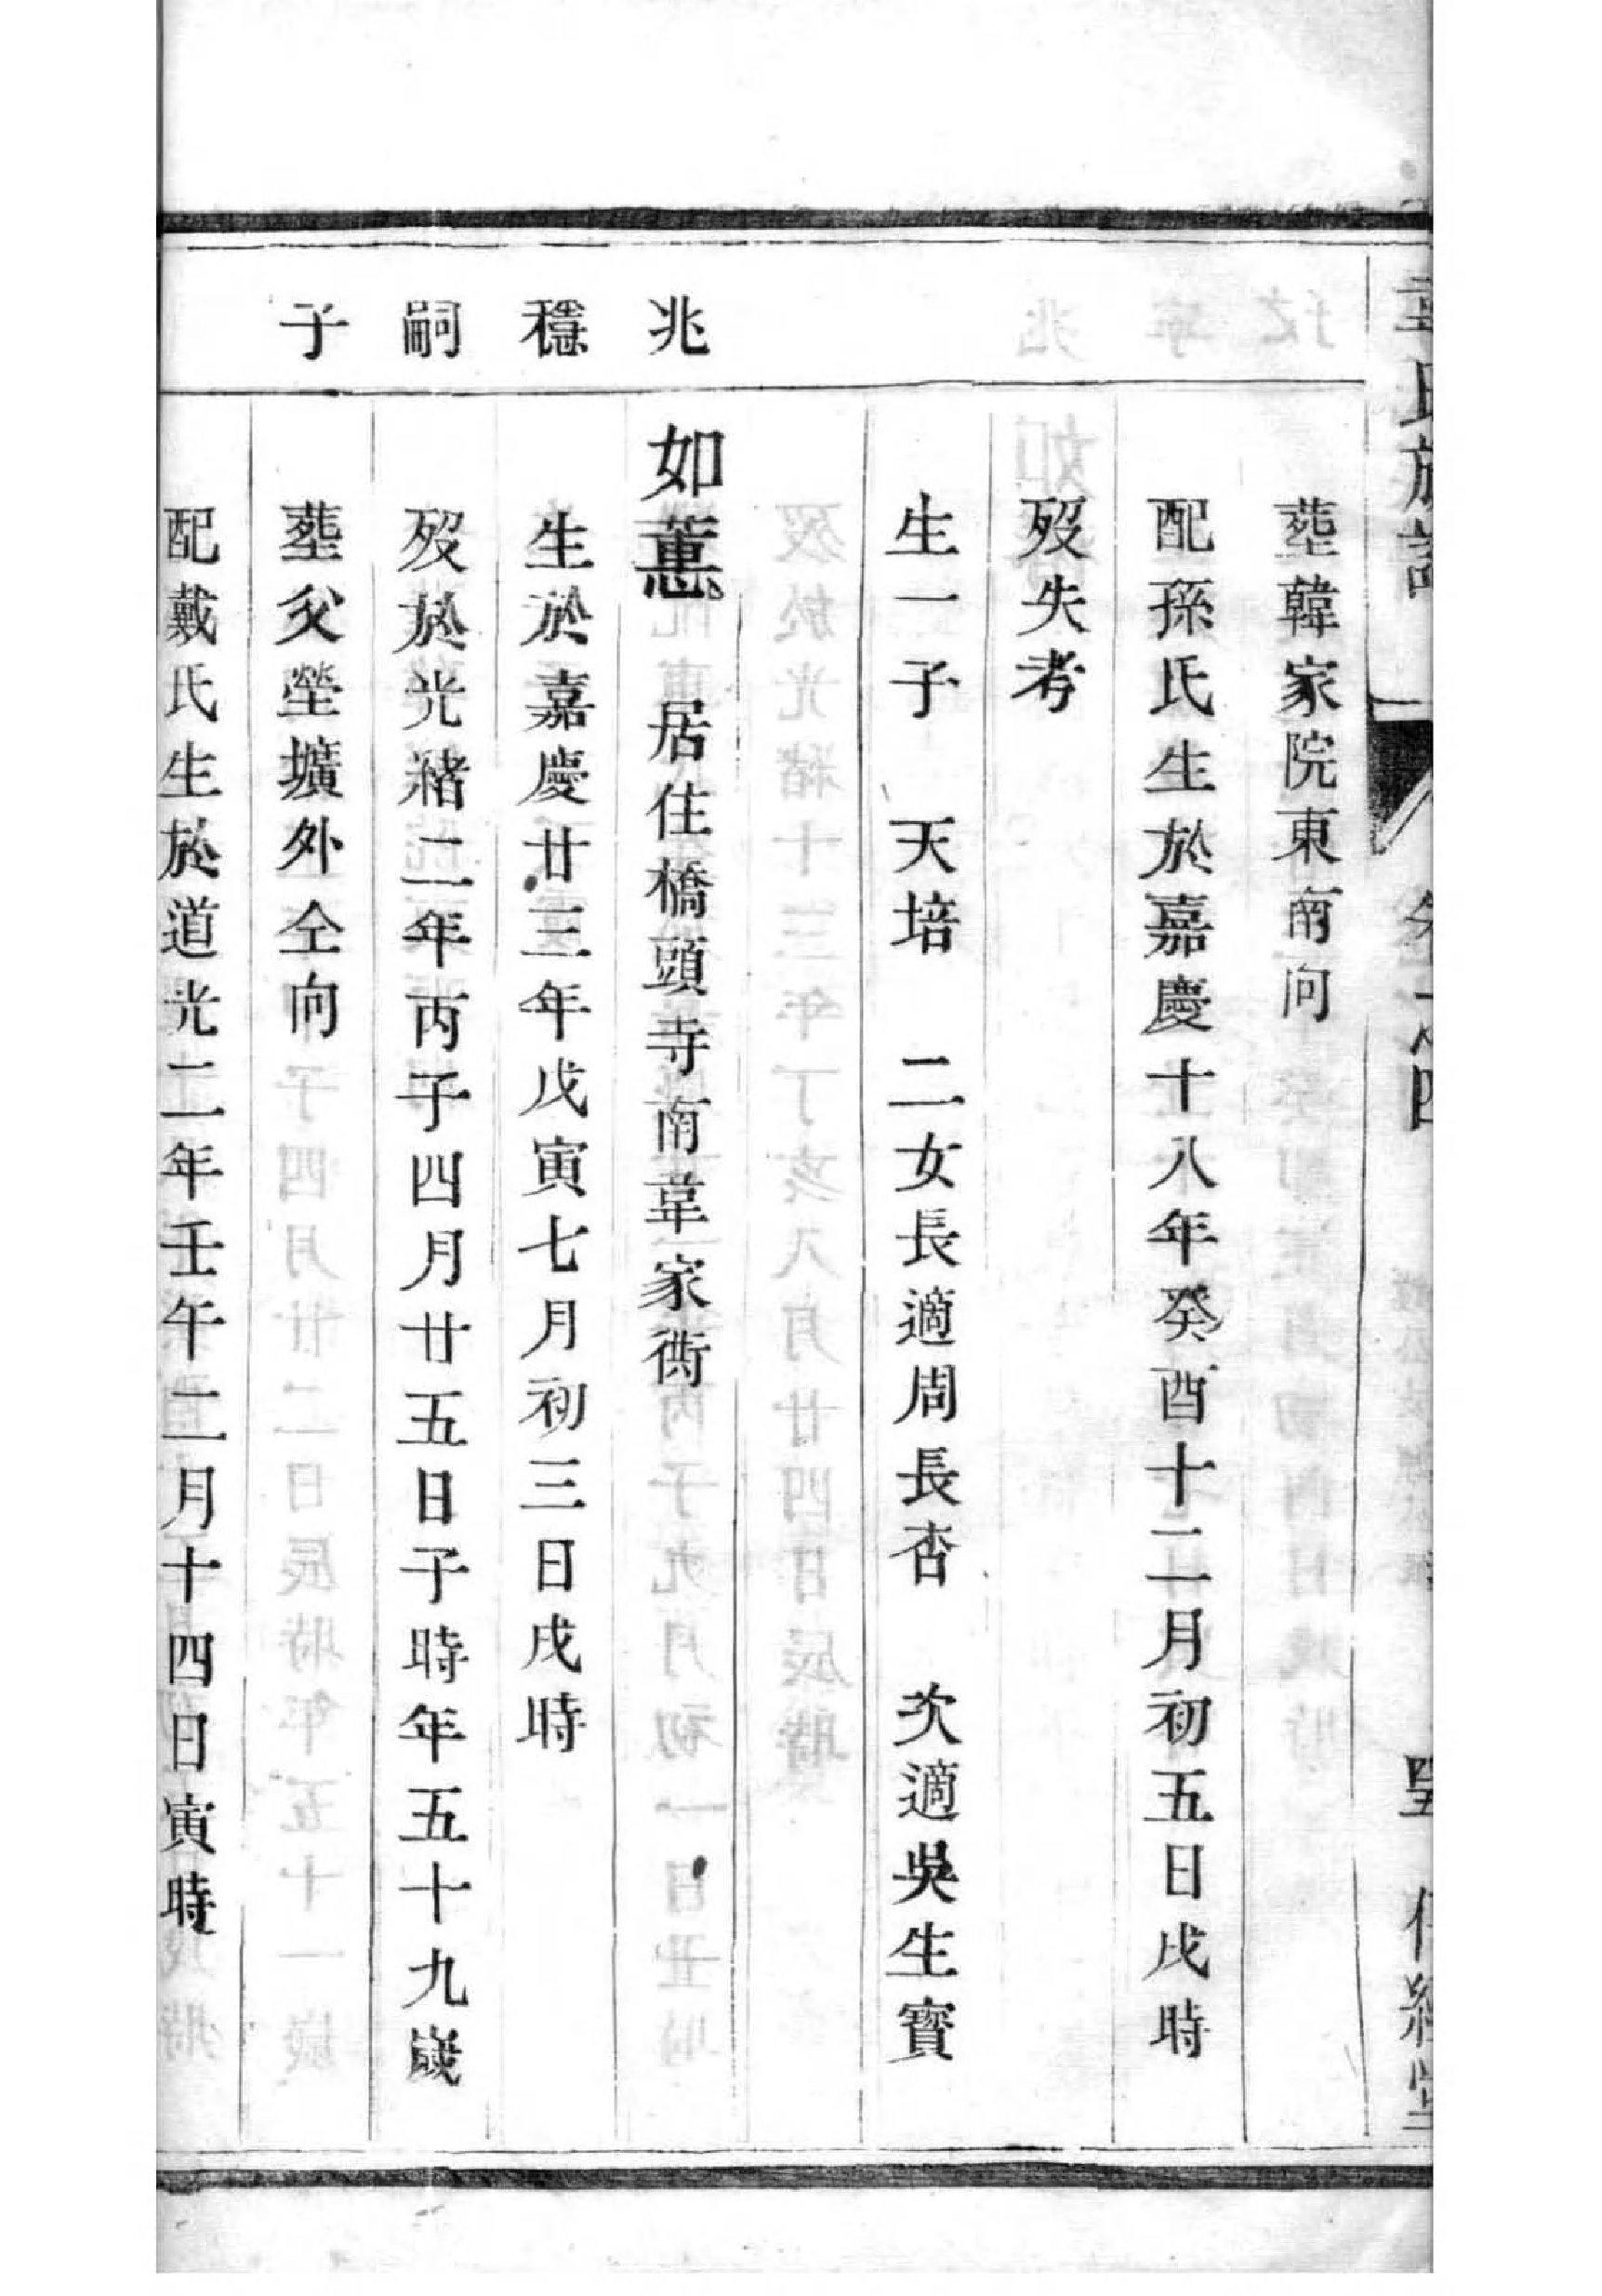 葬韓家院東南向
配孫氏生於嘉慶十八年癸酉十二月初五日戌時
歿失考
生一子 天培 二女長適周長杏 次適吳生寶
兆穩嗣子
如蕙 居住橋頭寺南韋家衖
生於嘉慶廿三年戊寅七月初三日戌時
歿於光緒二年丙子四月廿五日子時年五十九歲
葬父塋壙外仝向
配戴氏生於道光二年壬午二月十四日寅時